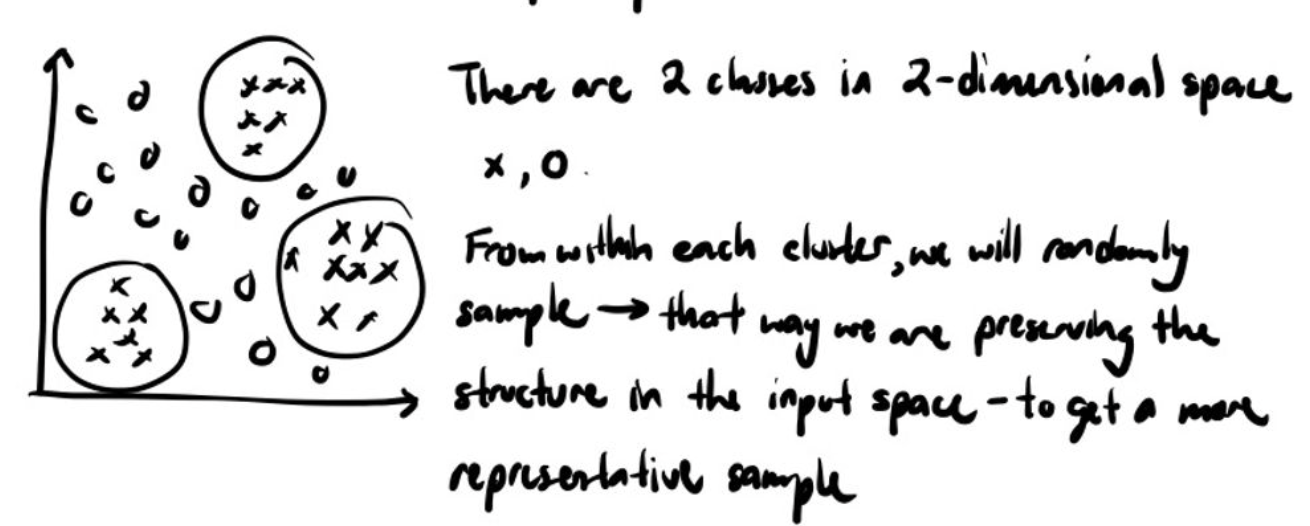 There are 2 classes in 2-dimensional space
x, O.
From within each cluster, we will randomly
sample → that way we are preserving the
structure in the input space - to get a more
representative sample